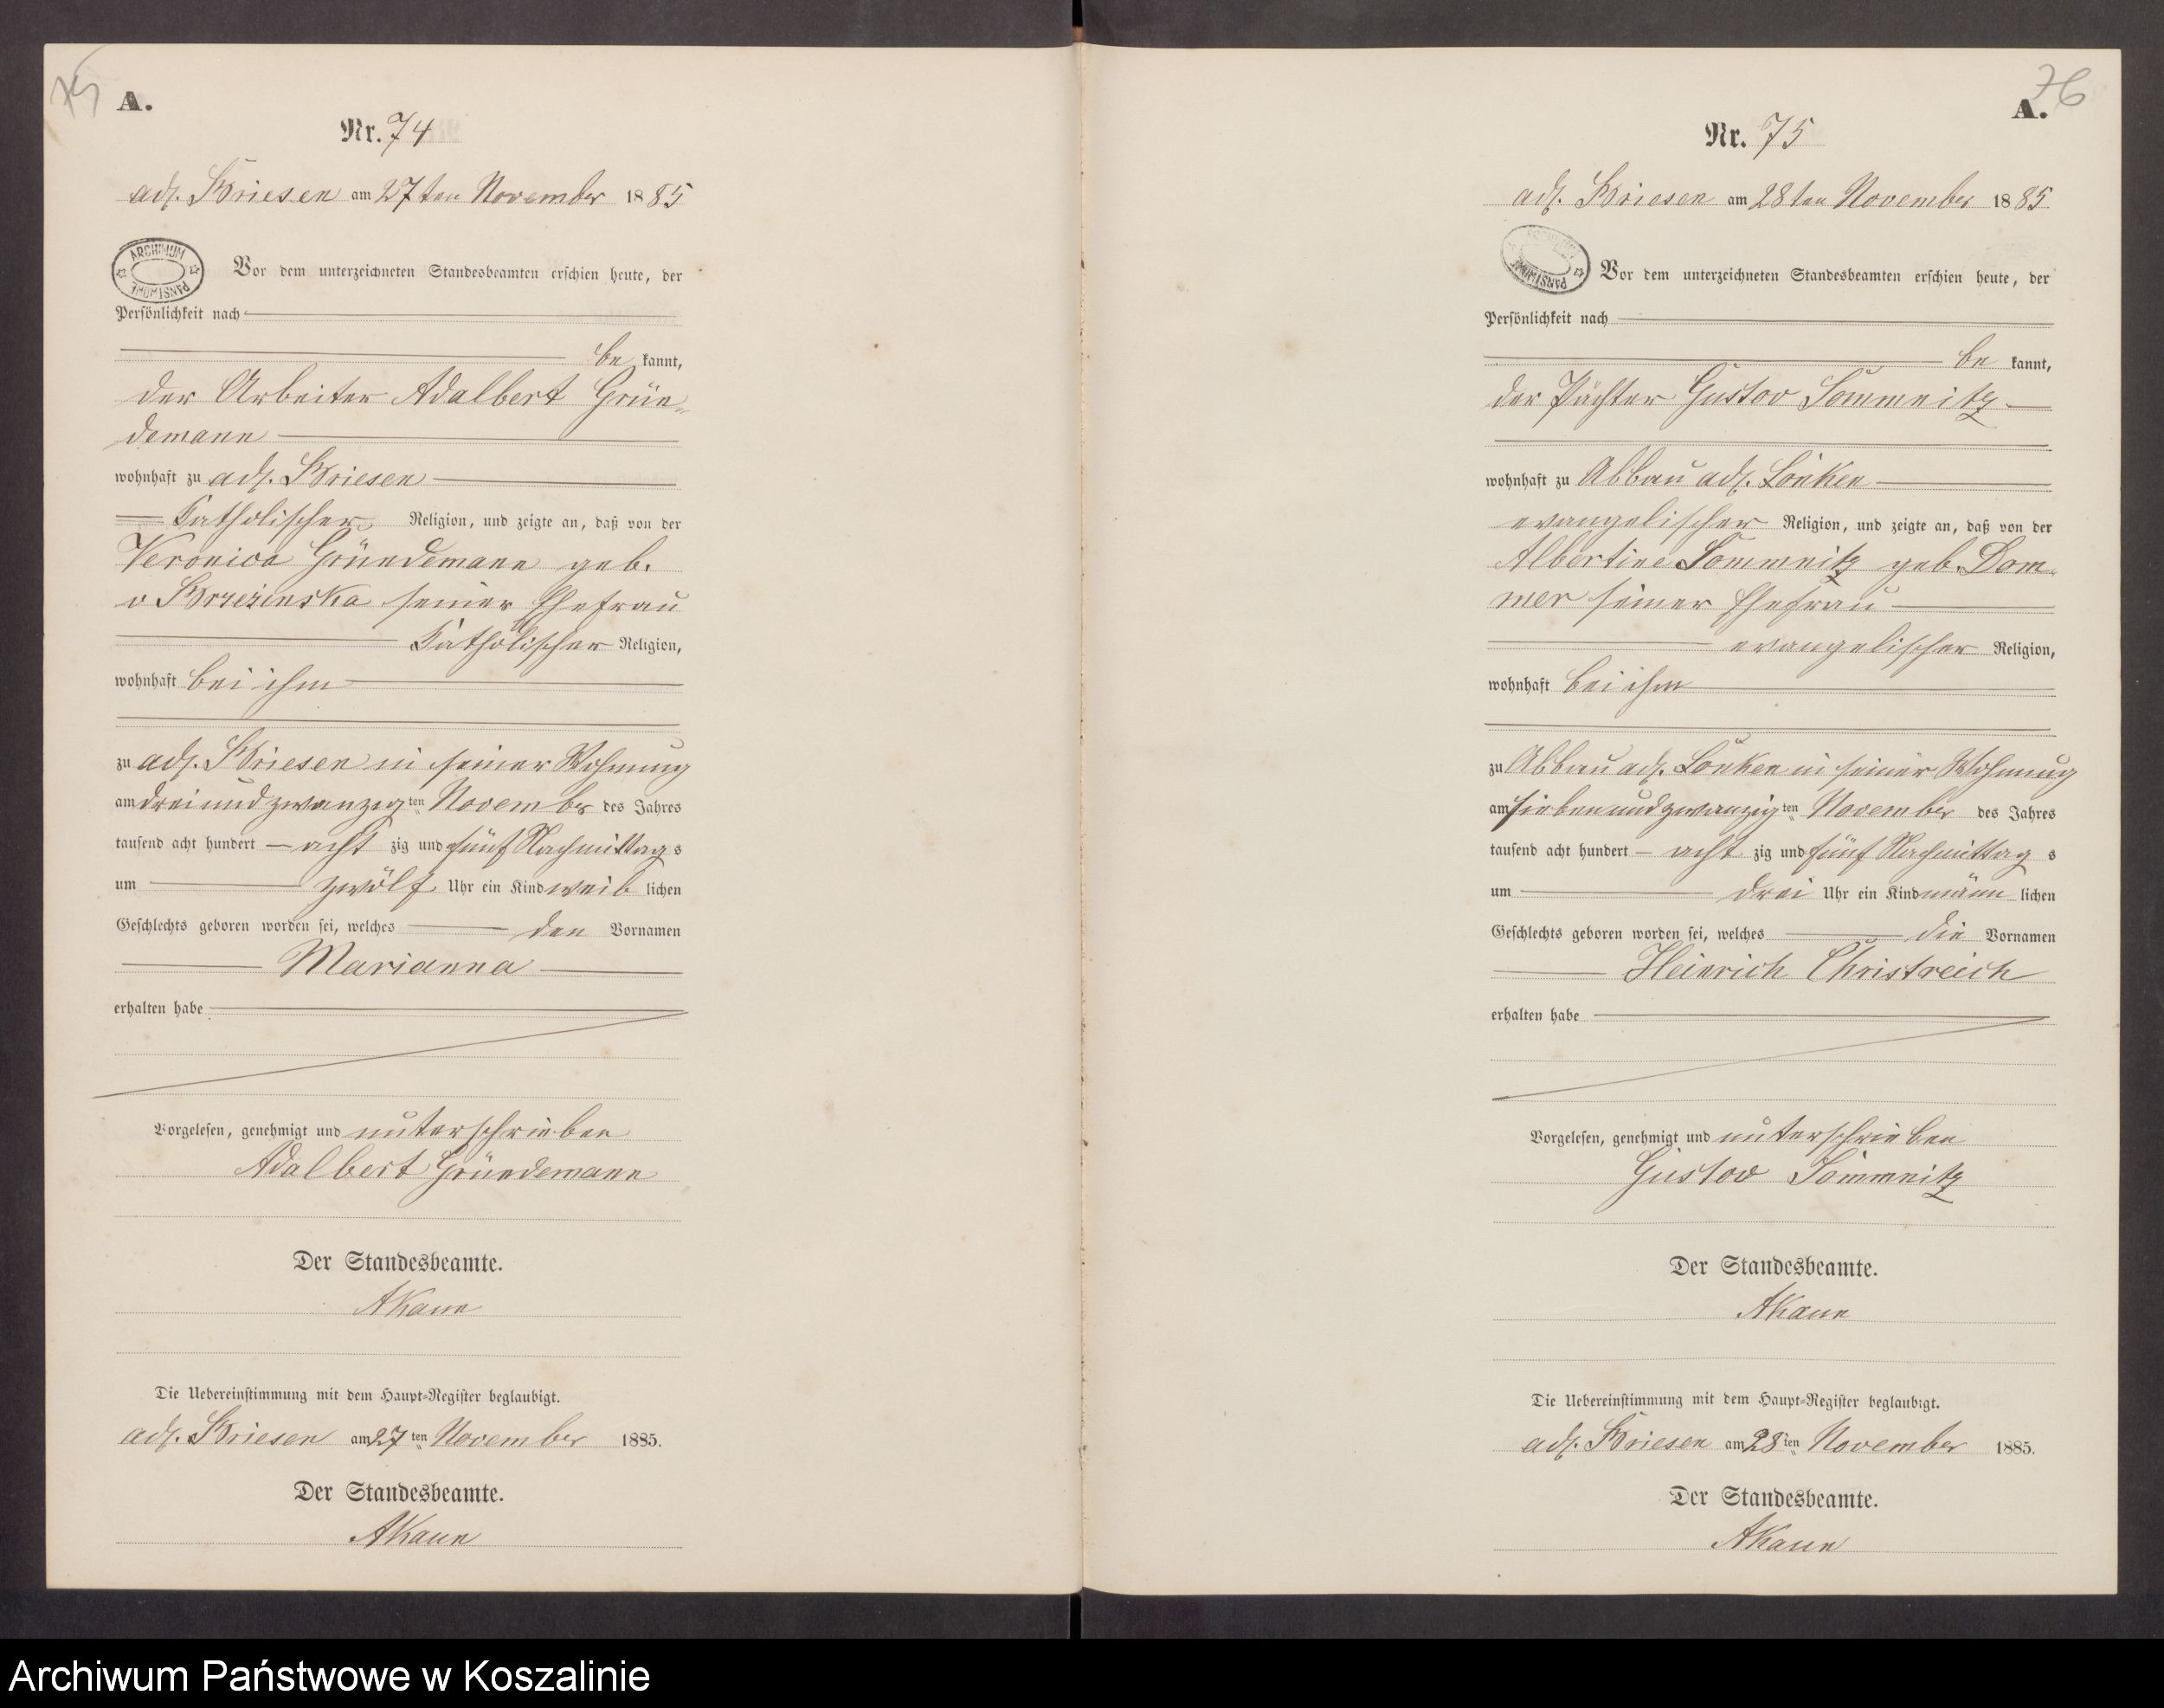 75
A.
Nr. 74
adl. Briesen am 27ten November 1885
ARCHIWUM PAŃSTWOWE
Vor dem unterzeichneten Standesbeamten erschien heute, der
Persönlichkeit nach
be kannt,
der Arbeiter Adalbert Grün-
demann
wohnhaft zu adl. Briesen
Katholischer Religion, und zeigte an, daß von der
Veronica Gründemann geb.
v Brzezinska seiner Ehefrau
Katholischer Religion,
wohnhaft bei ihm
zu adl. Briesen in seiner Wohnung
am drei und zwanzigten November des Jahres
tausend acht hundert acht zig und fünf Nachmittags
um zwölf Uhr ein Kind weib lichen
Geschlechts geboren worden sei, welches den Vornamen
Marianna
erhalten habe
Vorgelesen, genehmigt und unterschrieben
Adalbert Gründemann
Der Standesbeamte.
AKaun
Die Uebereinstimmung mit dem Haupt-Register beglaubigt.
adl. Briesen am 27ten November 1885.
Der Standesbeamte.
AKaun
76
A.
Nr. 75
adl. Briesen am 28ten November 1885
ARCHIWUM PAŃSTWOWE
Vor dem unterzeichneten Standesbeamten erschien heute, der
Persönlichkeit nach
be kannt,
der Pächter Gustav Sommnitz
wohnhaft zu Abbau adl. Lonken
evangelischer Religion, und zeigte an, daß von der
Albertine Sommnitz geb. Dom-
mer seiner Ehefrau
evangelischer Religion,
wohnhaft bei ihm
zu Abbau adl. Lonken in seiner Wohnung
am sieben und zwanzigten November des Jahres
tausend acht hundert acht zig und fünf Nachmittag s
um drei Uhr ein Kind männ lichen
Geschlechts geboren worden sei, welches die Vornamen
Heinrich Christreich
erhalten habe
Vorgelesen, genehmigt und unterschrieben
Gustav Sommnitz
Der Standesbeamte.
AKaun
Die Uebereinstimmung mit dem Haupt-Register beglaubigt.
adl. Briesen am 28ten November 1885.
Der Standesbeamte.
AKaun
Archiwum Państwowe w Koszalinie